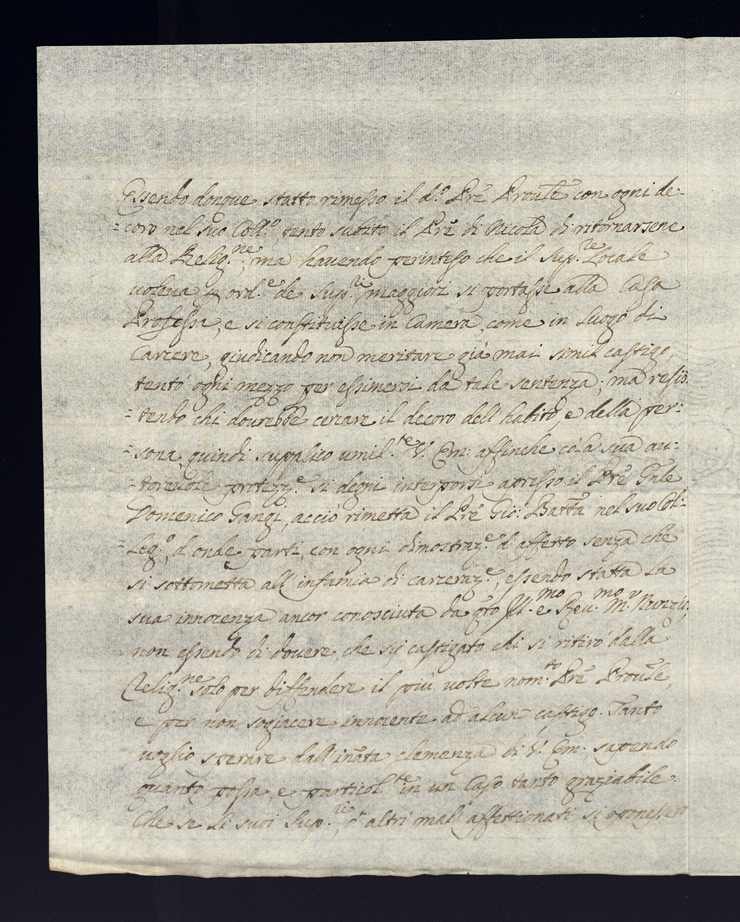 Essendo donque statto rimesso il d.º Prē Proūle con ogni de-
=coro nel suo Coll.º, tentò subito il Prē di Nicola di ritornarsene
alla Relig.ne, ma havendo perinteso che il Sup.re Locale
voleva p ord.e de Sup.ri maggiori si portasse alla Casa
Professa, e si constituisse in Camera, come in luogo di
Carcere, giudicando non meritare già mai simil castigo,
tentò ogni mezzo per essimersi da tale sentenza; ma resis=
=tendo chi dourebbe cercare il decoro dell'habito, e della per=
=sona, quindi supplico umil.te V. Em: affinche cō la sua au=
=torevole protezz.e si degni interporsi apresso il Prē Gnle
Domenico Gangi, acciò rimetta il Prē Gio: Battā nel suo Col=
=leg.º, d'onde partì, con ogni dimostraz.e d'affetto senza che
si sottometta all'infamia di carceraz.e, essendo statta la
sua innocenza ancor conosciuta da qto Ill.mo e Reu.mo M.r Nunzio,
non essendo di dovere, che sij castigato chi si ritirò dalla
Relig.ne solo per diffendere il più volte nom.to Prē Proūle,
e per non sogiacere innocente ad alcun castigo. Tanto
voglio sperare dall'inata clemenza di V. Em: sapendo
quanto possa, e particol.te in un caso tanto graziabile.
Che se li suoi Sup.ri, ò altri mal'affettionati si oponessero